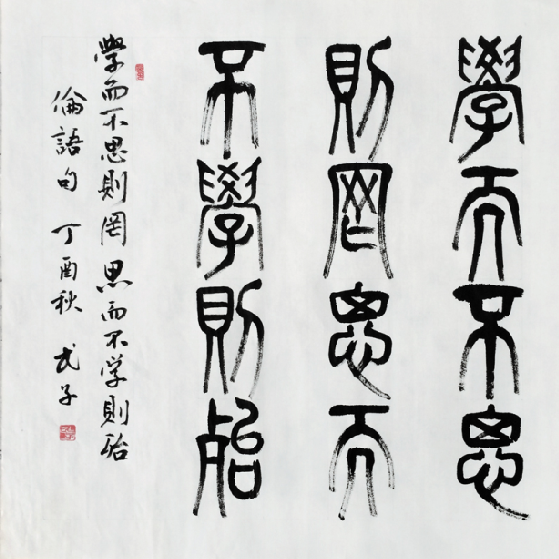 學而不思
則罔思而
不學則殆
學而不思則罔思而不学則殆
倫語句丁酉秋弌子